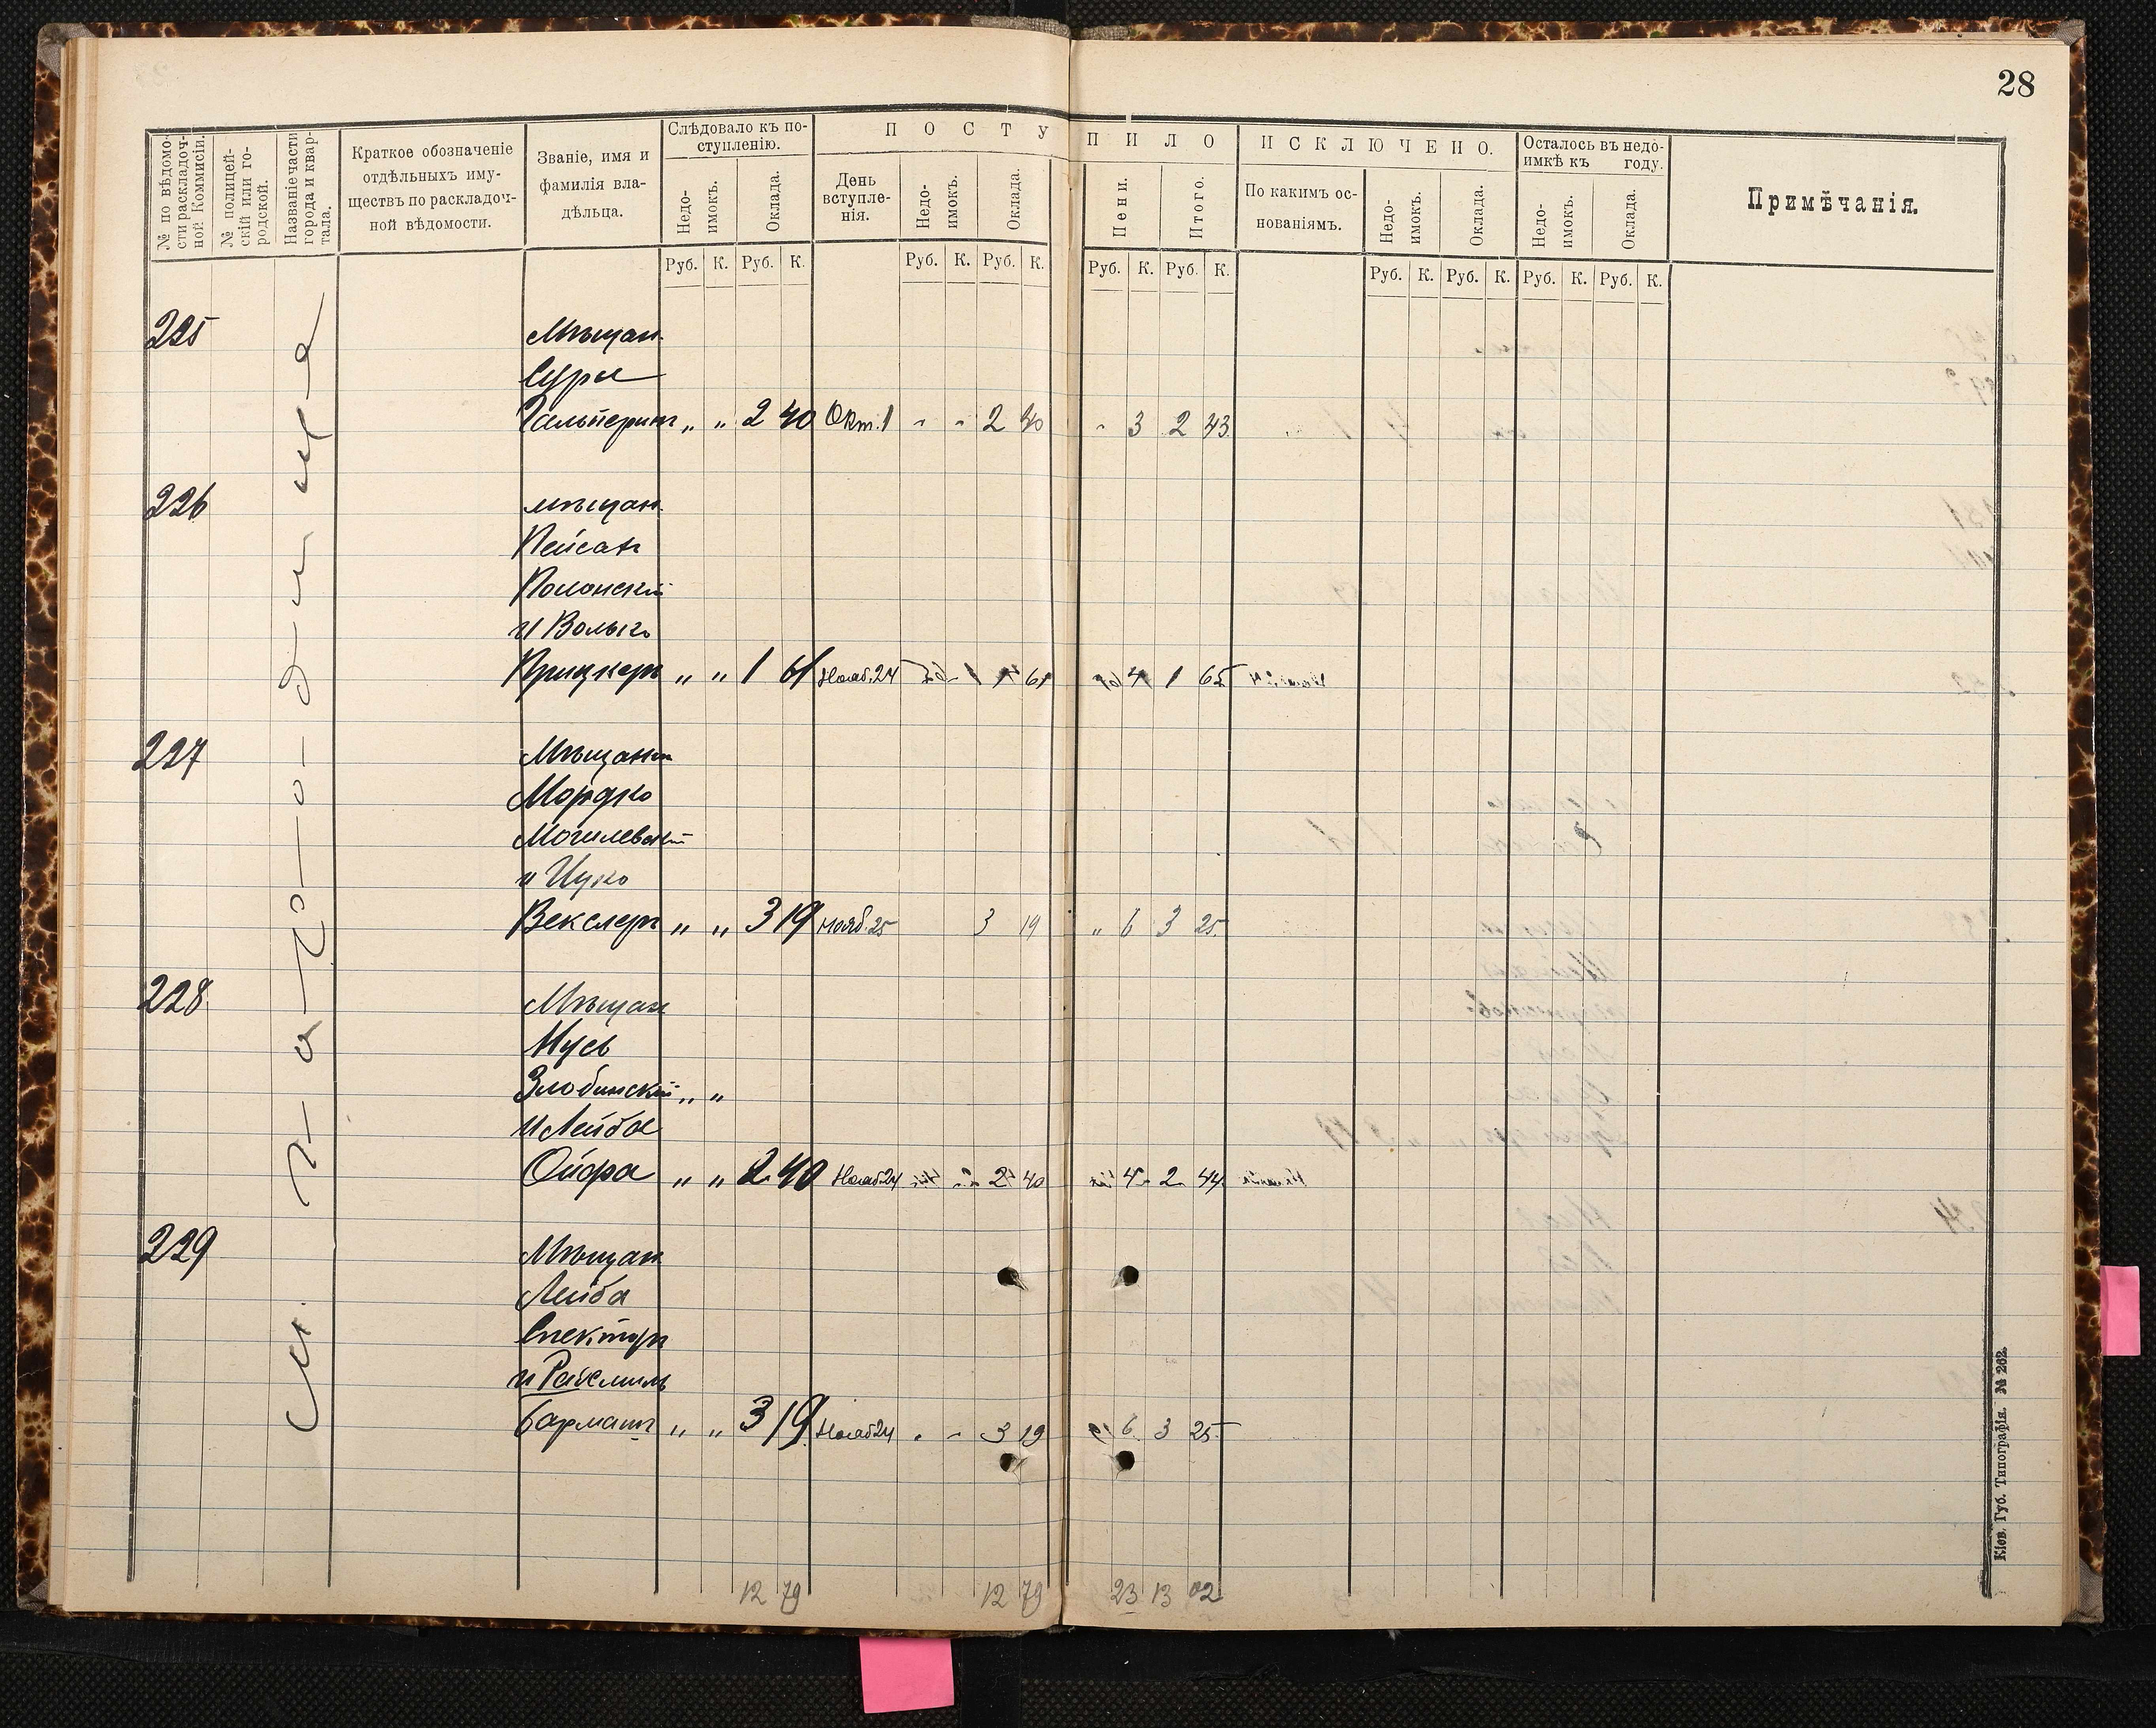 28
№ по вѣдомости раскладочной Коммисіи.
№ полицейскій или городской.
Названіе части города и квартала.
Краткое обозначеніе
отдѣльныхъ иму-
ществъ по раскладоч-
ной вѣдомости.
Званіе, имя и
фамилія вла-
дѣльца.
Слѣдовало къ по-
ступленію.
Недо-
имокъ.
Оклада.
ПОСТУПИЛО
День
вступле-
нія.
Недо-
имокъ.
Оклада.
Пени.
Итого.
ИСКЛЮЧЕНО.
По какимъ ос-
нованіямъ.
Недо-
имокъ.
Оклада.
Осталось въ недо-
имкѣ къ году.
Недо-
имокъ.
Оклада.
Примѣчанія.
Руб. К. Руб. К. Руб. К. Руб. К. Руб. К. Руб. К. Руб. К. Руб. К. Руб. К. Руб. К.
225 Мѣщан.
Сура
Гальперинъ „ „ 2 40 Окт. 1 - - 2 40 - 3 2 43
226 мѣщан.
Пейсах
Полонскій
и Волько
Прицкеръ „ „ 1 61 Нояб. 24 1 61 4 1 65
227 Мѣщане
Мордко
Могилевскій
и Ицко
Векслеръ „ „ 3 19 Нояб. 25 3 19 „ 6 3 25
228 Мѣщан
Мусь
Злобинскій „ „
и Лейба
Ойфа „ „ 2 40 Нояб 24 2 40 4 2 44
229 Мѣщан
Лейба
Спекторъ
и
Барманъ „ „ 3 19 Нояб 24 3 19 6 3 25
12 79 12 79 23 13 02
Кіев. Губ. Типографія. № 262.